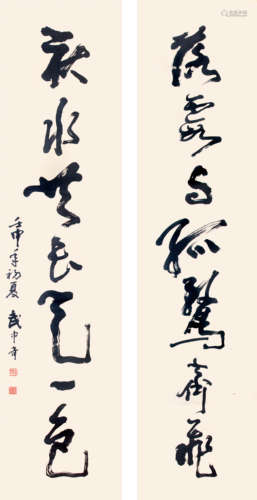 落霞与孤鹜齐飞
秋水共长天一色
壬申年初夏 武中奇